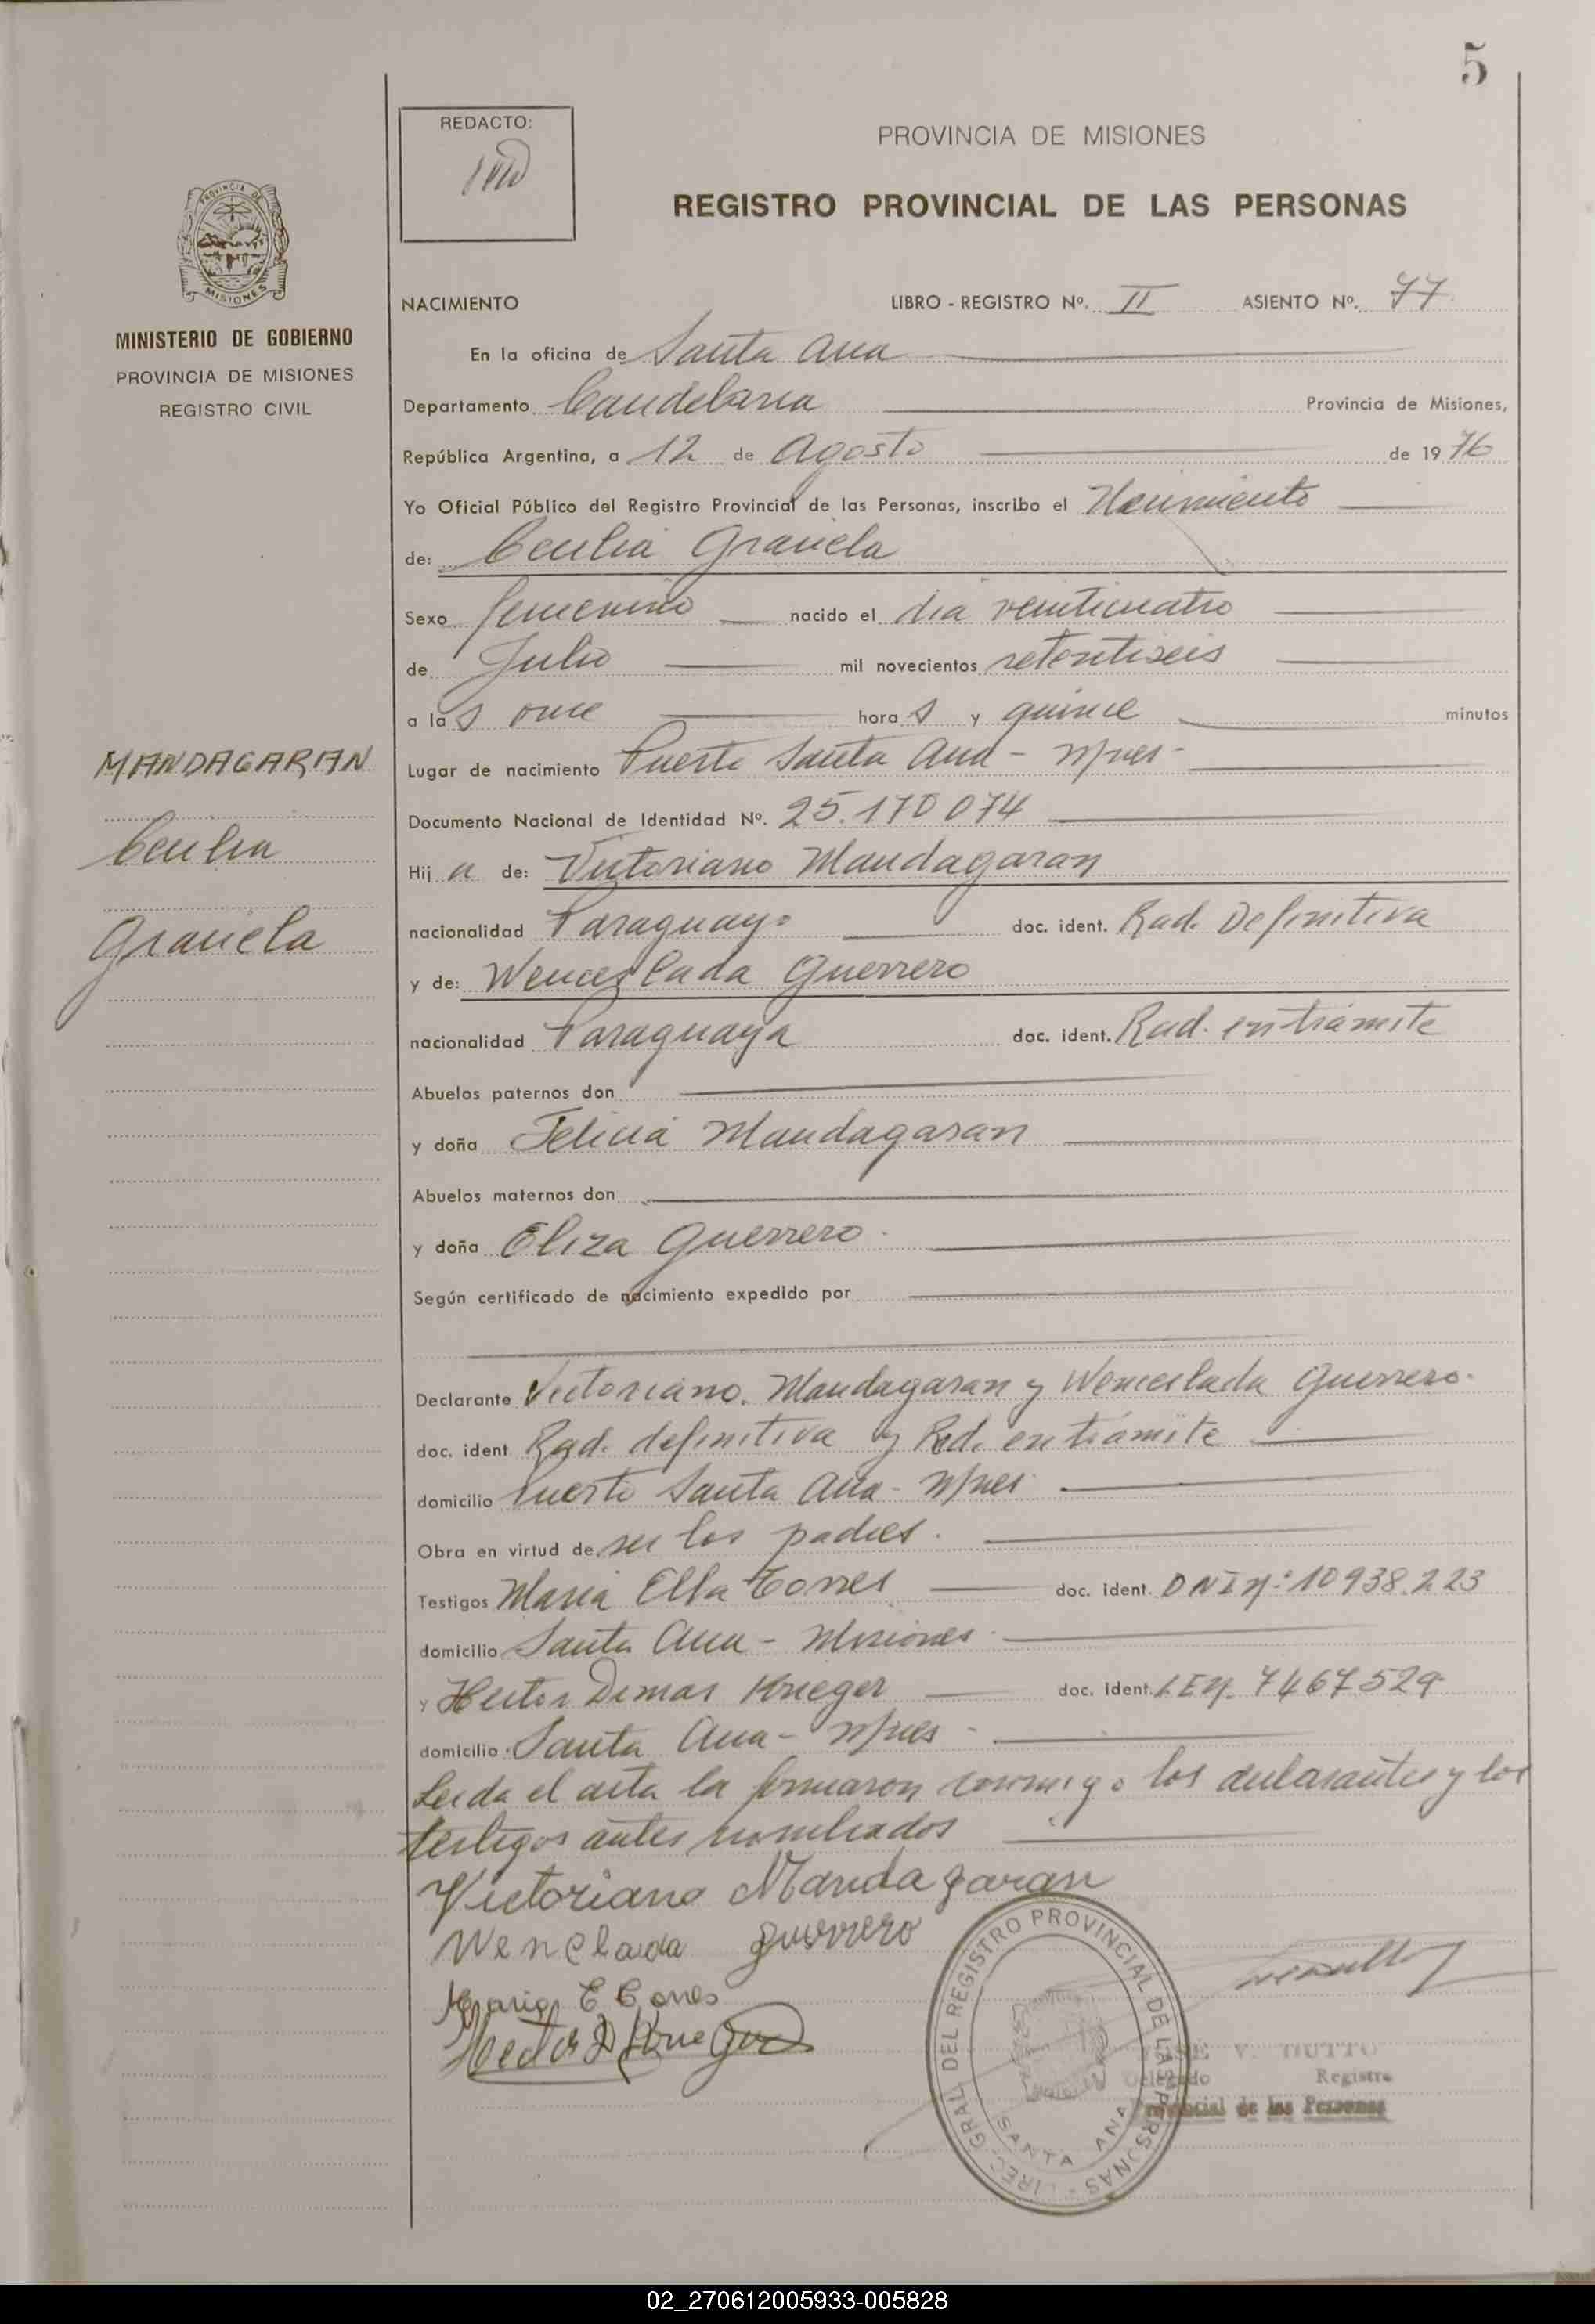 5
REDACTO:
PROVINCIA DE MISIONES
REGISTRO PROVINCIAL DE LAS PERSONAS
PROVINCIA DE
MISIONES
MINISTERIO DE GOBIERNO
PROVINCIA DE MISIONES
REGISTRO CIVIL
NACIMIENTO LIBRO - REGISTRO Nº. II ASIENTO Nº. 77
En la oficina de Santa Ana
Departamento Candelaria Provincia de Misiones,
República Argentina, a 12 de Agosto de 1976
Yo Oficial Público del Registro Provincial de las Personas, inscribo el Nacimiento
de: Cecilia Graciela
Sexo femenino nacido el día veinticuatro
de Julio mil novecientos setentiseis
a las once horas y quince minutos
MANDAGARAN
Cecilia
Graciela
Lugar de nacimiento Puerto Santa Ana - Mnes -
Documento Nacional de Identidad Nº. 25.170 074
Hija de: Victoriano Mandagaran
nacionalidad Paraguayo doc. ident. Rad. Definitiva
y de: Wenceslada Guerrero
nacionalidad Paraguaya doc. ident. Rad. en trámite
Abuelos paternos don
y doña Felicia Mandagaran
Abuelos maternos don
y doña Eliza Guerrero
Según certificado de nacimiento expedido por
Declarante Victoriano Mandagaran y Wenceslada Guerrero.
doc. ident Rad. definitiva y Rad. en trámite
domicilio Puerto Santa Ana - Mnes
Obra en virtud de ser los padres.
Testigos Maria Elba Torres doc. ident. DNI nº 10938.223
domicilio Santa Ana - Misiones
y Hector Dimas Krieger doc. ident. LE nº 7467529
domicilio Santa Ana - Mnes -
Leida el acta la firmaron conmigo los declarantes y los
testigos antes nombrados
Victoriano Mandagaran
Wenclada guerrero
Maria E Torres
Hector D Krieger
DIREC. GRAL DEL REGISTRO PROVINCIAL DE LAS PERSONAS
SANTA ANA
JOSE V. DUTTO
Delegado Registro
Provincial de las Personas
02_270612005933-005828